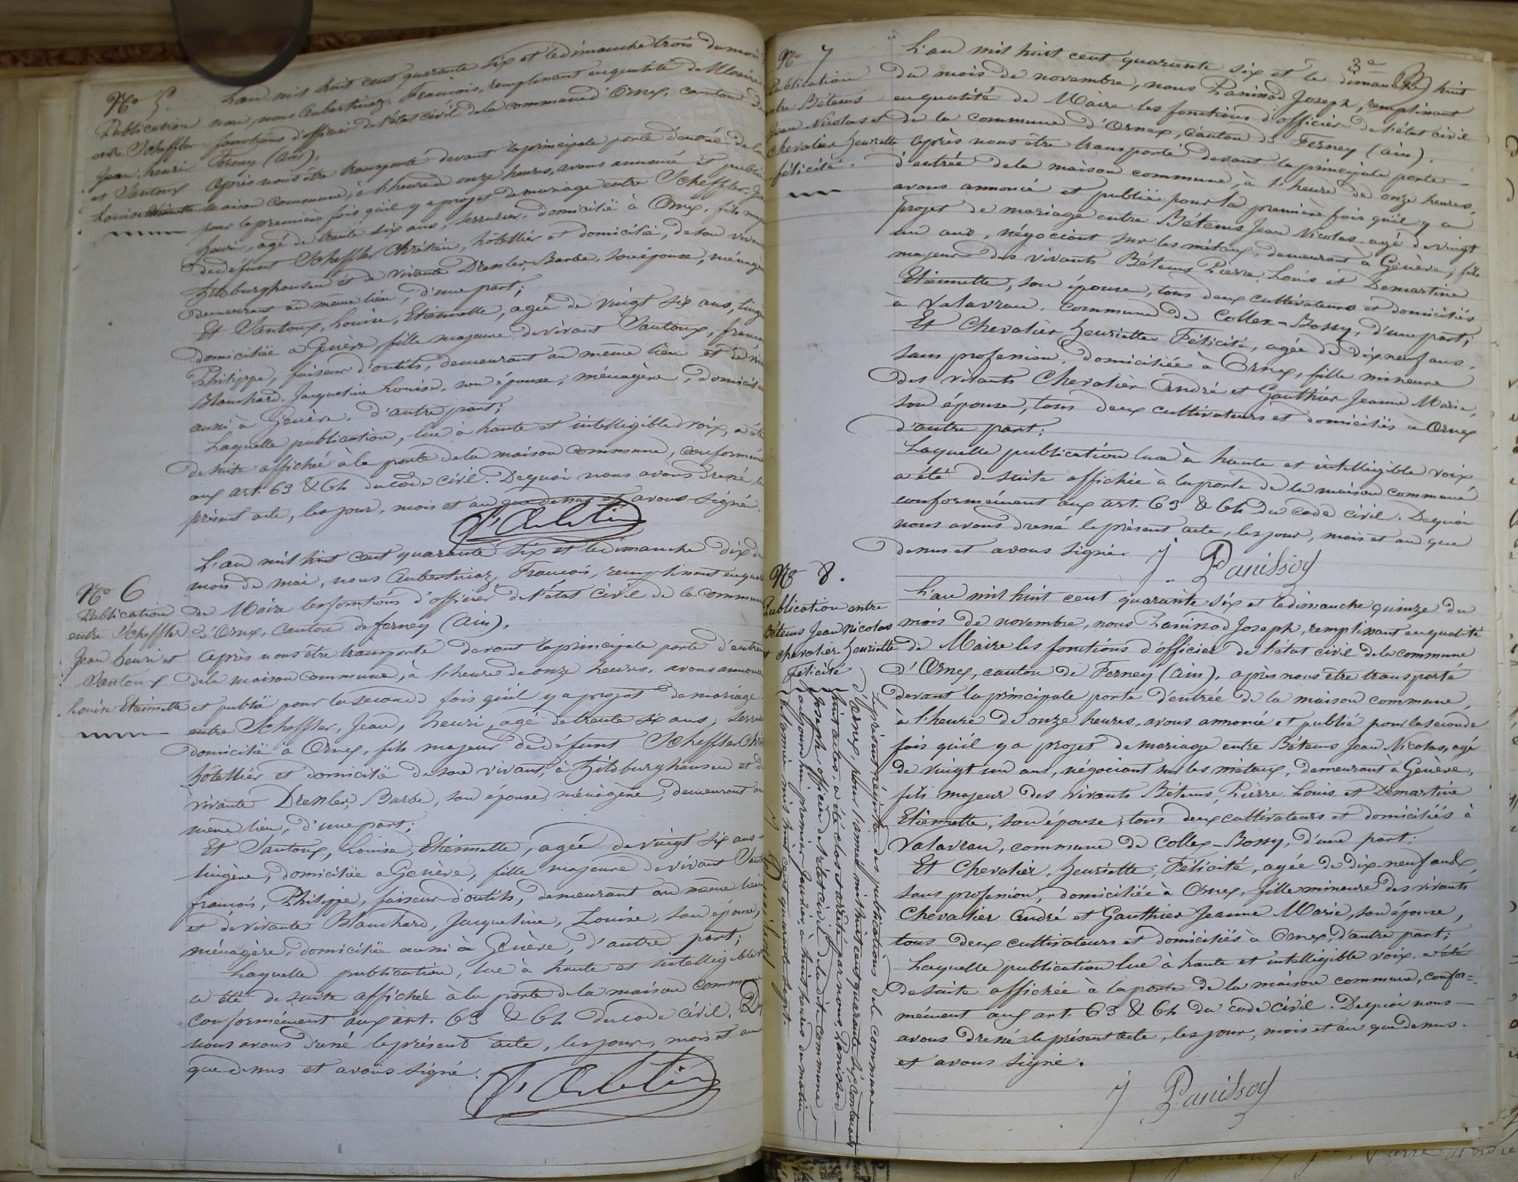 No 5.
Publication
entre Scheffler
Jean henri
et Vautoux
Louise Etiennette
L'an mil huit cent quarante six et le dimanche trois du mois
mai, nous Aubertinaz, Francois, remplissant en qualité de Maire
fonctions d'officier de l'état civil de la commune d'Ornex, canton de
Ferney (Ain).
Après nous être transporté devant la principale porte d'entrée de la
maison commune, à l'heure de onze heures, avons annoncé et publié
pour la première fois qu'il y a projet de mariage entre Scheffler, Jean
henri, agé de trente six ans, serrurier, domicilié à Ornex, fils majeur
de défunt Scheffler Christian, hôtellier et domicilié, de son vivant
hildburghausen et de vivante Dressler, Barbe, son épouse, ménagère
demeurant au meme lieu, d'une part;
Et Vautoux, Louise, Etiennette, agée de vingt six ans, lingère
domiciliée à Genève fille majeure de vivant Vautoux, francois
Philippe, faiseur d'outils, demeurant au même lieu et de vivante
Blanchard, Jacqueline Louise, son épouse, ménagère, domiciliée
aussi à Genève, d'autre part;
Laquelle publication, lue à haute et intelligible voix, a été
de suite affichée à la porte de la maison commune, conformément
aux art. 63 & 64 du code civil. De quoi nous avons dressé le
présent acte, les jour, mois et an que dessus et avons signé.
No 6
Publication
entre Scheffler
Jean henri et
Vautoux
Louise Etiennette
L'an mil huit cent quarante six et le dimanche dix du
mois de mai, nous Aubertinaz, Francois, remplissant en qualité
de Maire les fonctions d'officier de l'état civil de la commune
d'Ornex, canton de ferney (Ain).
Après nous être transporté devant la principale porte d'entrée
de la maison commune, à l'heure de onze heures, avons annoncé
et publié pour la seconde fois qu'il y a projet de mariage
entre Scheffler, Jean, henri, agé de trente six ans, serrurier
domicilié à Ornex, fils majeur de défunt Scheffler Christian
hôtellier et domicilié de son vivant, à hildburghausen et de
vivante Dressler, Barbe, son épouse ménagère, demeurant au
même lieu, d'une part;
Et Vautoux, Louise, Etiennette, agée de vingt six ans
lingère, domiciliée à Genève, fille majeure de vivant Vautoux
francois, Philippe, faiseur d'outils, demeurant au même lieu
et de vivante Blanchard, Jacqueline, Louise, son épouse,
ménagère, domiciliée aussi à Genève, d'autre part;
Laquelle publication, lue à haute et intelligible
a été de suite affichée à la porte de la maison commune
conformément aux art. 63 & 64 du code civil. De
nous avons dressé le présent acte, les jour, mois et an
que dessus et avons signé.
No 7
Publication
entre Bétems
Jean Nicolas et
Chevalier henriette
félicité
L'an mil huit cent quarante six et le dimanche huit
du mois de novembre, nous Panissod Joseph, remplissant
en qualité de Maire les fonctions d'officier de l'état civil
de la commune d'Ornex, canton de Ferney (ain).
Après nous être transporté devant la principale porte
d'entrée de la maison commune, à l'heure de onze heures,
avons annoncé et publié pour la première fois qu'il y a
projet de mariage entre Bétems Jean Nicolas agé de vingt
un ans, négociant sur les métaux, demeurant à Genève, fils
majeur des vivants Bétems Pierre Louis et Demartine
Etiennette, son épouse, tous deux cultivateurs et domiciliés
à Valavran, commune de Collex-Bossy, d'une part;
Et Chevalier henriette Félicité, agée de dix neuf ans,
sans profession, domiciliée à Ornex, fille mineure
des vivants Chevalier André et Gauthier Jeanne Marie,
son épouse, tous deux cultivateurs et domiciliés à Ornex
d'autre part;
Laquelle publication lue à haute et intelligible voix
a été de suite affichée à la porte de la maison commune
conformément aux art. 63 & 64 du code civil. De quoi
nous avons dressé le présent acte, les jour, mois et an que
dessus et avons signé. J Panissod
No 8.
Publication entre
Bétems Jean Nicolas
et chevalier henriette
félicité
L'an mil huit cent quarante six et le dimanche quinze du
mois de novembre, nous Panissod Joseph, remplissant en qualité
de Maire les fonctions d'officier de l'état civil de la commune
d'Ornex, canton de Ferney (ain), après nous être transporté
devant la principale porte d'entrée de la maison commune,
à l'heure de onze heures, avons annoncé et publié pour la seconde
fois qu'il y a projet de mariage entre Bétems Jean Nicolas, agé
de vingt un ans, négociant sur les métaux, demeurant à Genève,
fils majeur des vivants Bétems, Pierre Louis et Demartine
Etiennette, son épouse, tous deux cultivateurs et domiciliés à
Valavran, commune de Collex-Bossy, d'une part;
Et Chevalier, henriette, Félicité, agée de dix neuf ans,
sans profession, domiciliée à Ornex, fille mineure des vivants
Chevalier André et Gauthier Jeanne Marie, son épouse,
tous deux cultivateurs et domiciliés à Ornex, d'autre part;
Laquelle publication lue à haute et intelligible voix, a été
de suite affichée à la porte de la maison commune, confor-
mément aux art. 63 & 64 du code civil. De quoi nous
avons dressé le présent acte, les jour, mois et an que dessus.
et avons signé.
J Panissod
Le présent registre des publications de la commune
d'Ornex, pour l'année mil huit cent quarante six contenant
huit actes, a été clos et arrêté par nous, Panissod
Joseph, officier de l'état civil de la dite commune
aujourd'hui premier Janvier, à huit heures du matin
mil huit cent quarante sept.
J Panissod